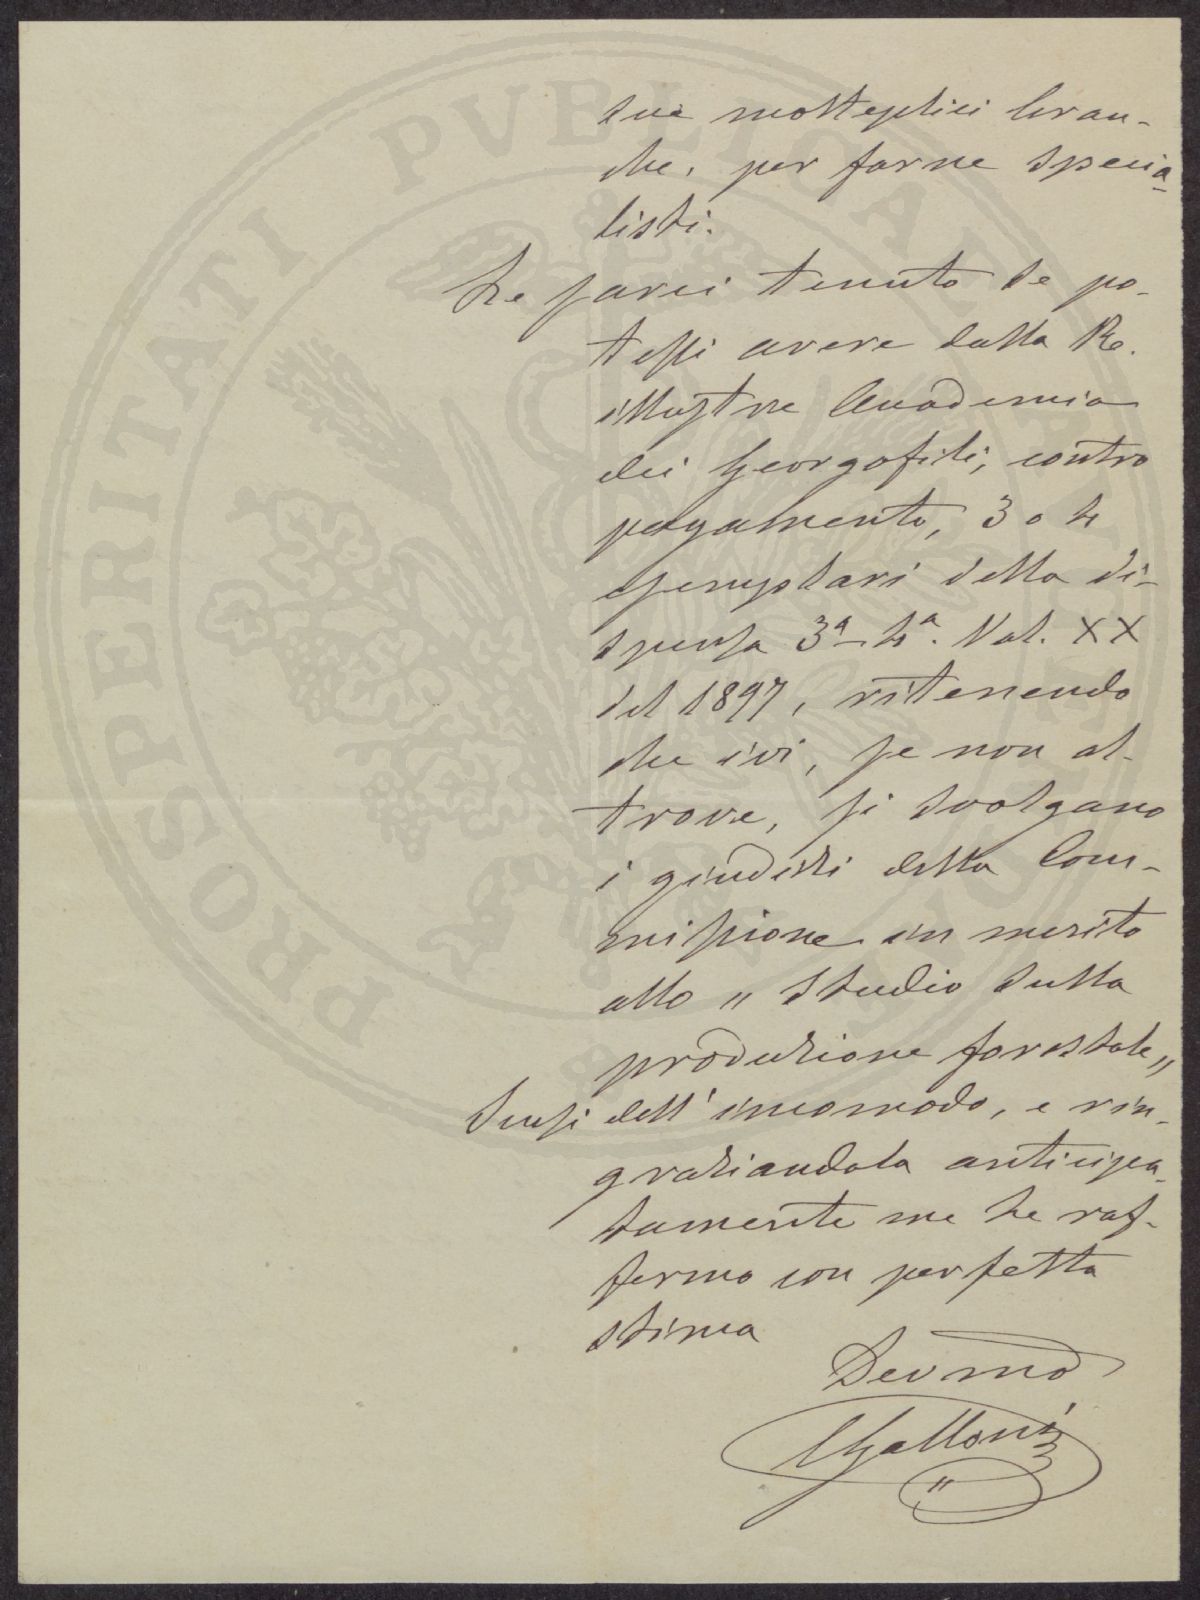 sue molteplici bran-
che, per farne specia-
listi.
Le sarei tenuto se po-
tessi avere dalla R.
illustre Accademia
dei Georgofili, contro
pagamento, 3 o 4
esemplari della di-
spensa 3ª-4ª. Vol. XX
del 1897, ritenendo
che ivi, se non al-
trove, si svolgano
i giudizi della Com-
missione in merito
allo " Studio sulla
produzione forestale"
Scusi dell'incomodo, e rin-
graziandola anticipa-
tamente me Le raf-
fermo con perfetta
stima
Devmo
Galloni
PROSPERITATI PVBLICAE